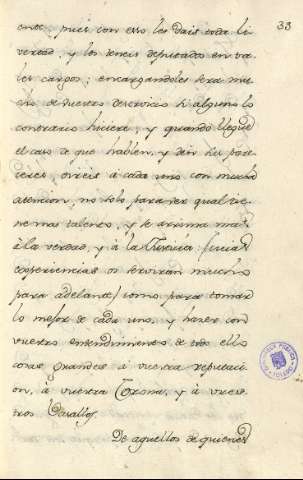 33
ente, pues con esso les dais toda li
vertad, y los teneis deputados en ta
les cargos; encargandoles sera mu
cho de vuestro deservicio si alguno lo
contrario hiciere; y quando llegue
el caso de que hablen, y den sus pare
ceres, oireis à cada uno con mucha
atencion, no solo para ver qual tie
ne mas talento, y se arrima mas
à la verdad, y à la Justicia (cuias
experiencias os serviran mucho
para adelante) como para tomar
lo mejor de cada uno, y hacer con
vuestro entendimiento de todo ello
cosas grandes à vuestra reputacion
, à vuestra Corona, y à vues
tros Vasallos.
De aquellos de quienes